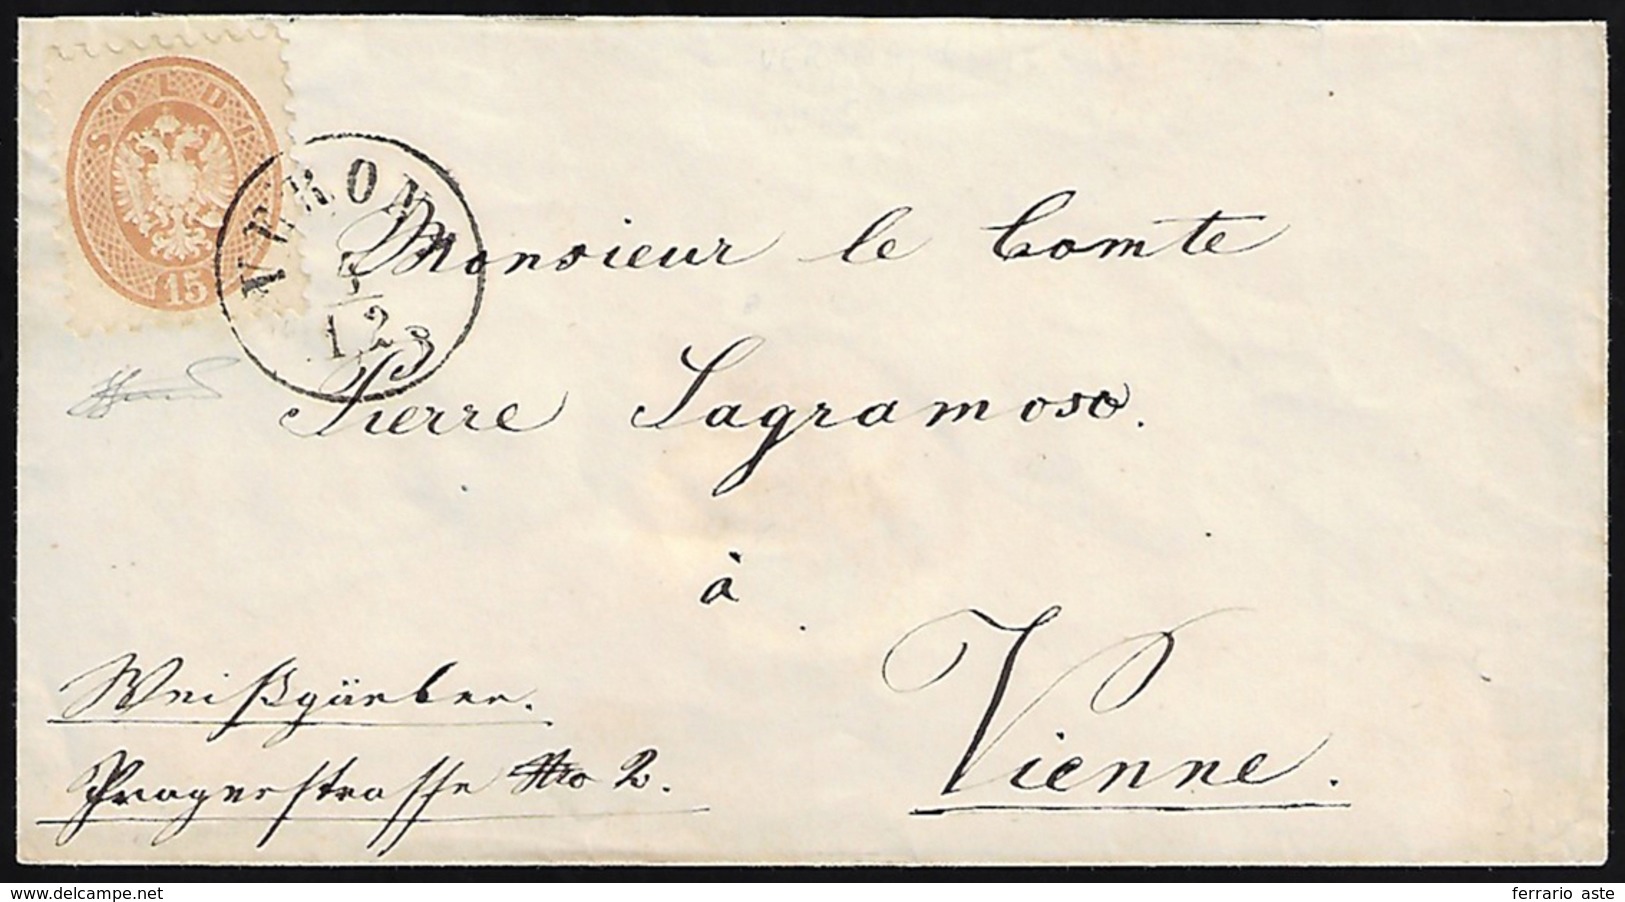 SOLDI
15
VERONA
12
Monsieur le Comte
Pierre Sagramoso.
à
Vienne.
Weißgärber.
Pragerstrasse No 2.
delcampe.net
ferrario aste